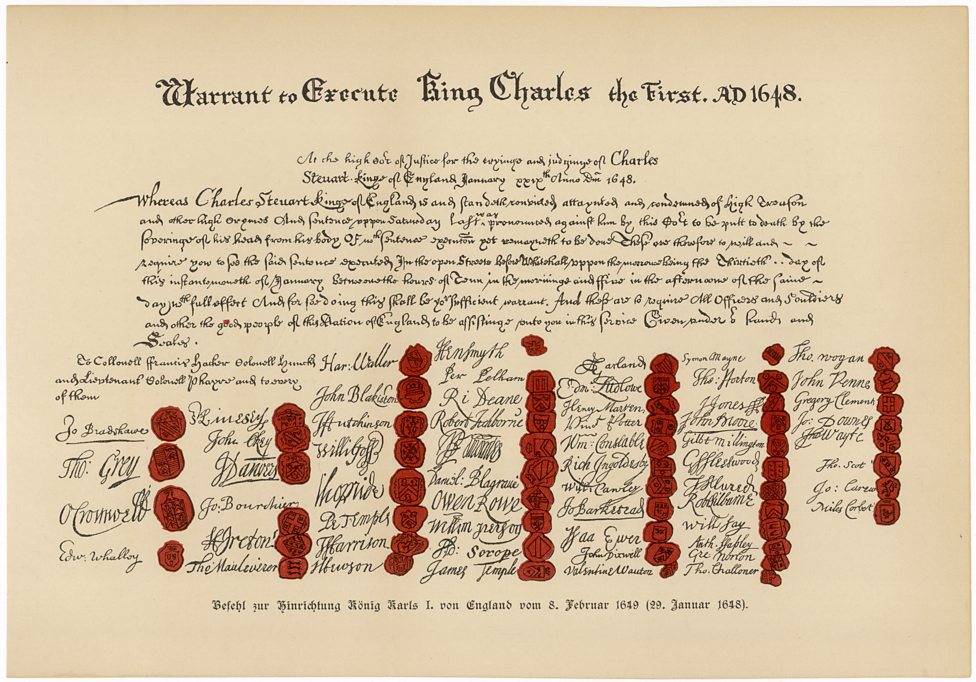 Warrant to Execute King Charles the First. AD 1648.
At the high Cort of Justice for the tryinge and judginge of Charles
Steuart Kinge of England January xxixth Anno Dm 1648.
Whereas Charles Steuart Kinge of England is and standeth convicted attaynted and condemned of high Treason
and other high Crymes And sentence uppon Saturday last was pronounced against him by this Cort to be putt to death by the
severinge of his head from his body Of wch sentence execucon yet remayneth to be done These are therefore to will and
require you to see the said sentence executed In the open Streete before Whitehall uppon the morrowe being the Thirtieth day of
this instante moneth of January betweene the houres of Tenn in the morninge and ffive in the afternoone of the same
day wth full effect And for soe doing this shall be yor sufficient warrant. And these are to require All Officers and Souldiers
and other the good people of this Nation of England to be assistinge unto you in this service Given under or hands and
Seales.
To Collonell ffrancis Hacker Colonell Huncks
and Lieutenant Colonell Phayre and to every
of them
Jo Bradshawe
Tho: Grey
O Cromwell
Edw. Whalley
M Livesey
John Okey
J Danvers
Jo. Bourchier
H Ireton
Tho Mauleverer
Har: Waller
John Blakiston
J Hutchinson
Willi Goff
Tho Pride
Pe Temple
T Harrison
J Hewson
Hen Smyth
Per Pelham
Ri Deane
Robert Tichborne
Daniel Blagrave
Owen Rowe
William Purefoy
James Temple
A Garland
Edm: Ludlowe
Henry Marten
Vinct Potter
Wm: Constable
Rich Ingoldesby
Will Cawley
Jo Barkestead
Isaa Ewer
John Dixwell
Valentine Wauton
Symon Mayne
Tho: Horton
J Jones
John Moore
Gilbt Millington
G Fleetwood
J Alured
Rob Lilburne
Will Say
Anth Stapley
Gre Norton
Tho. Challoner
Tho. Wogan
John Venn
Gregory Clement
Jo: Downes
Tho Wayte
Tho. Scot
Jo: Carew
Miles Corbet
Befehl zur Hinrichtung König Karls I. von England vom 8. Februar 1649 (29. Januar 1648).